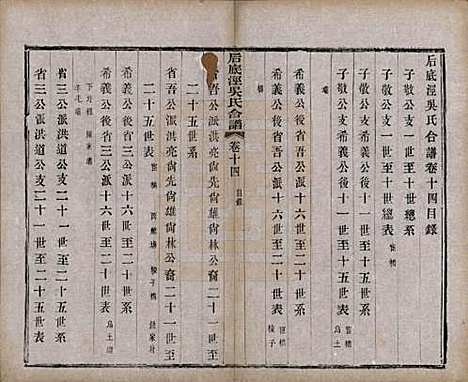 后底涇吳氏合譜卷十四目錄
子敬公支一世至十世總系
子敬公支一世至十世總表
子敬公支希義公後十一世至十五世表
希義公後省吾公派十六世至二十世系
希義公後省吾公派十六世至二十世表
后底涇吳氏合譜
卷十四
目錄
省吾公派洪亮尚先尚雄尚林公裔二十一世至
二十五世系
省吾公派洪亮尚先尚雄尚林公裔二十一世至
二十五世表
希義公後省三公派十六世至二十世系
希義公後省三公派十六世至二十世表
省三公派洪道公支二十一世至二十五世系
省三公派洪道公支二十一世至二十五世表